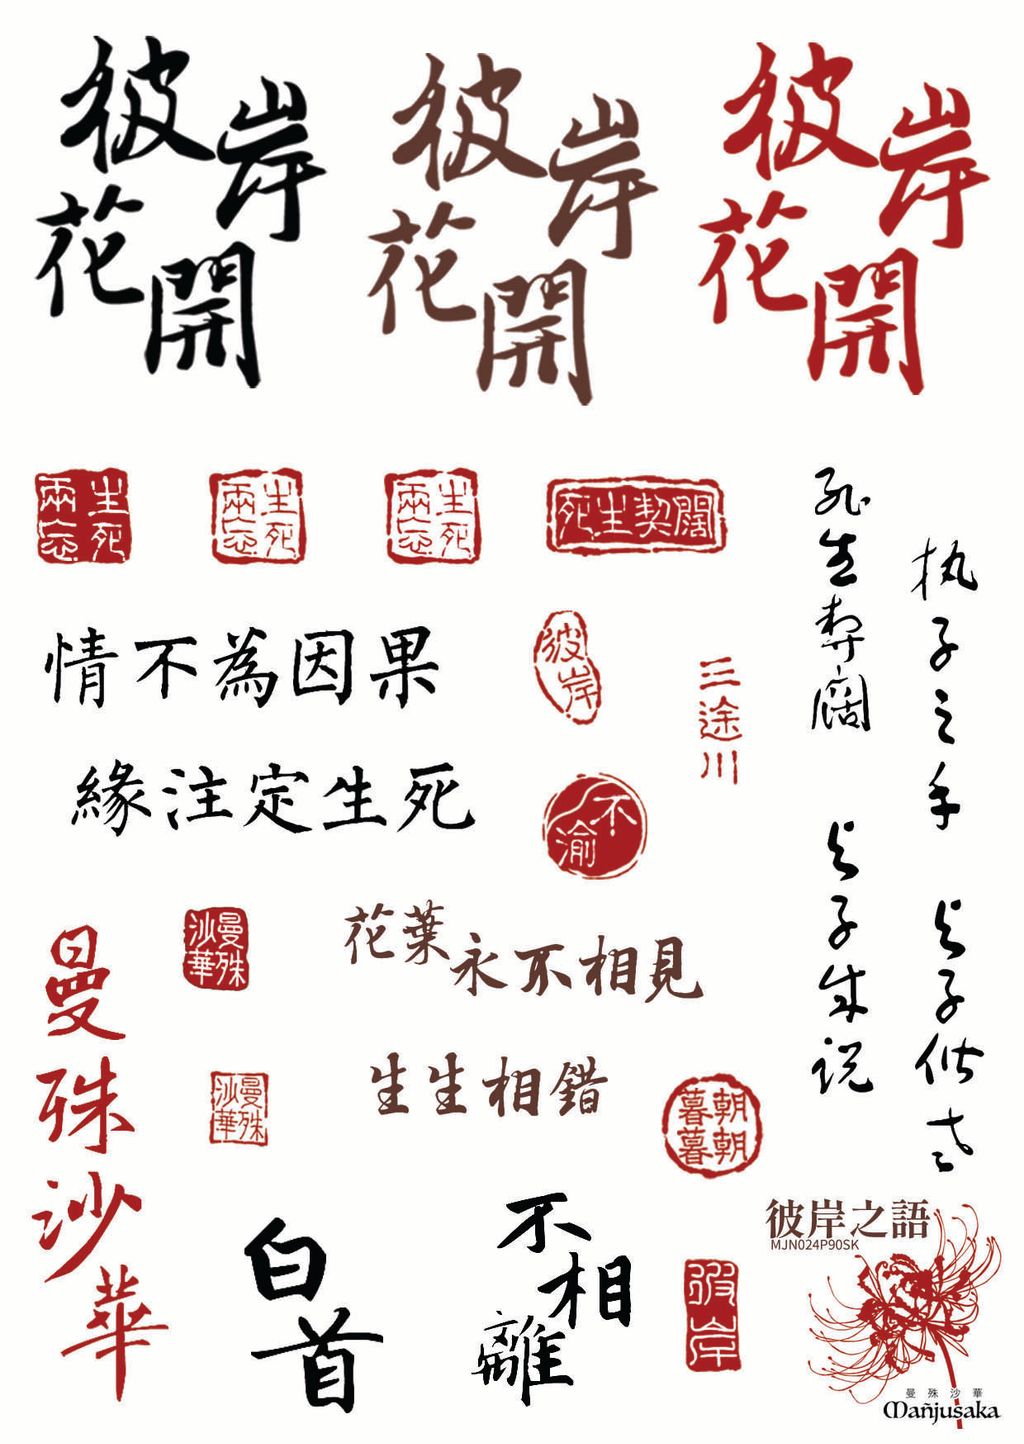 彼岸
花開
彼岸
花開
彼岸
花開
生死
兩忘
生死
兩忘
生死
兩忘
死生契闊
死生契闊
与子成说
执子之手
与子偕老
情不為因果
緣注定生死
彼岸
三途川
不渝
曼殊沙華
曼殊
沙華
花葉永不相見
生生相錯
曼殊
沙華
朝朝
暮暮
白首
不相離
彼岸
彼岸之語
MJN024P90SK
曼殊沙華
Mañjusaka